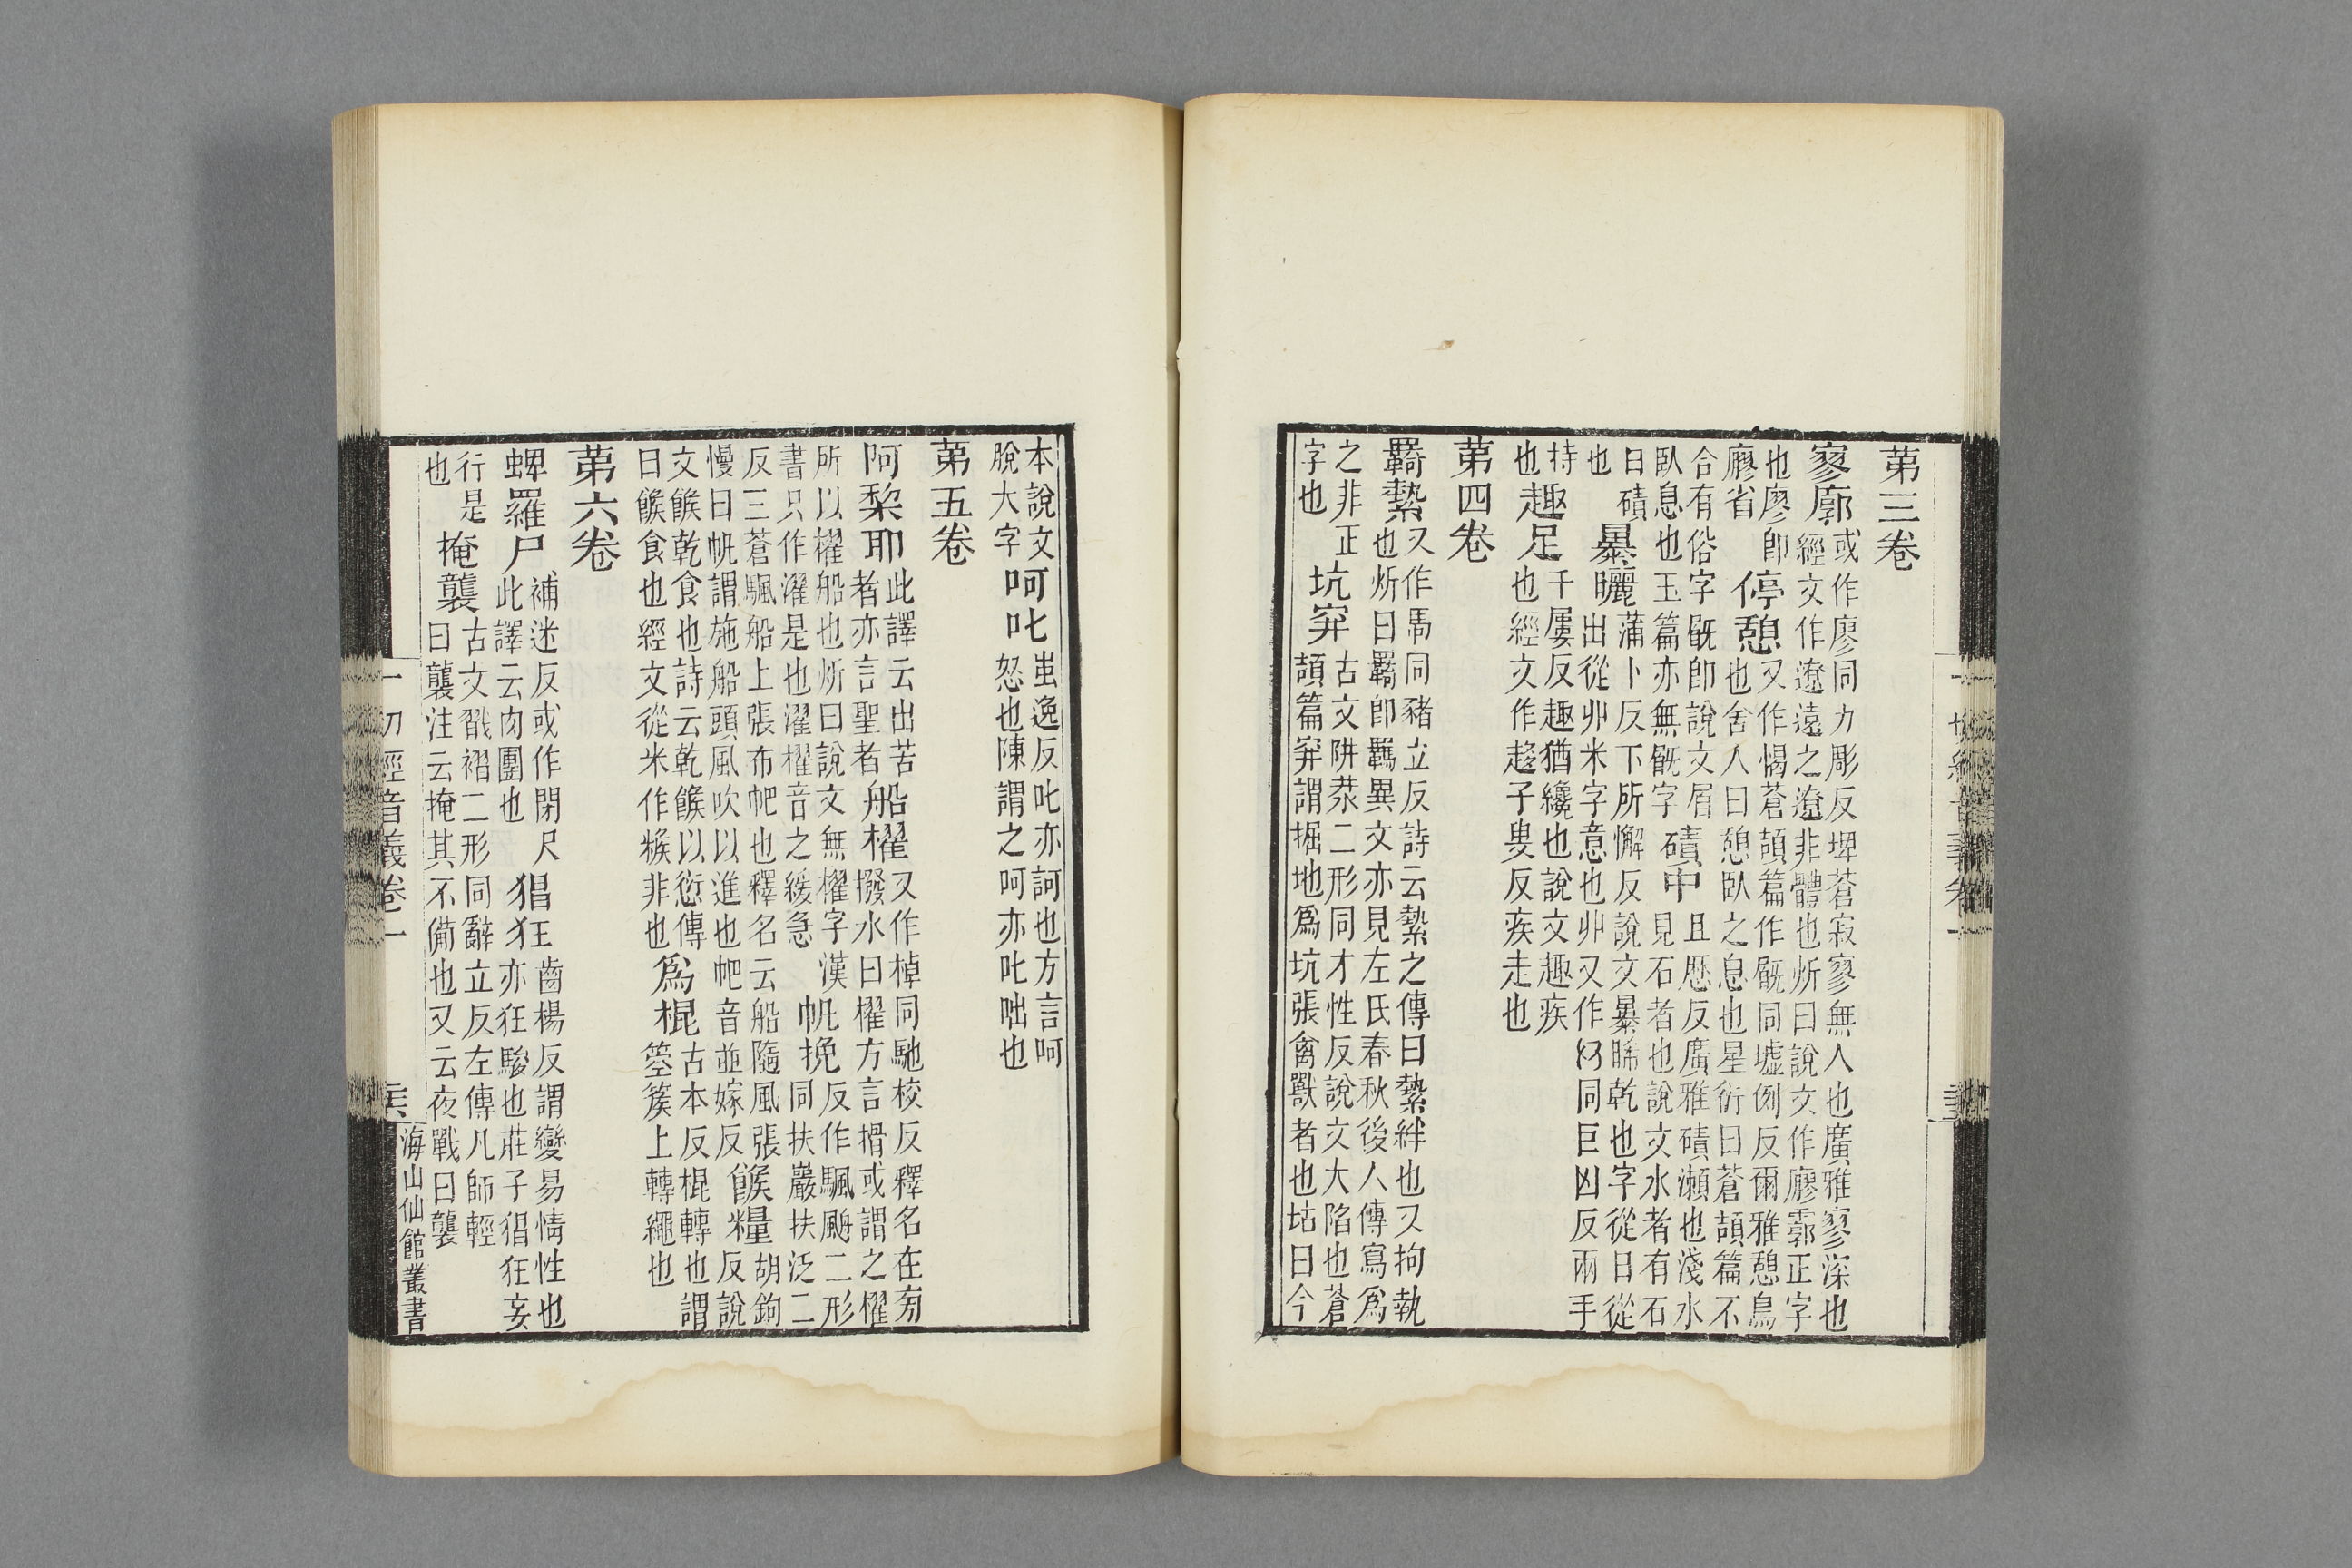 第三卷
寥廓 或作廖同力彫反埤蒼寂寥無人也廣雅寥深也
經文作遼遠之遼非體也炘曰說文作廫霩正字
也廖卽
廫省
停憩 又作愒蒼頡篇作㕧同墟例反爾雅憩鳥
也舍人曰憩臥之息也星衍曰蒼頡篇不
合有俗字㕧卽說文屑
臥息也玉篇亦無㕧字
磧中 且歷反廣雅磧瀨也淺水
見石者也說文水者有石
曰磧
也
暴曬 蒲卜反下所懈反說文暴晞乾也字從日從
出從廾米字意也廾又作𠬞同巨凶反兩手
持
也
趣足 千屢反趣猶纔也說文趣疾
也經文作趍子臾反疾走也
第四卷
羇縶 又作馽同豬立反詩云縶之傳曰縶絆也又拘執
也炘曰羇卽羈異文亦見左氏春秋後人傳寫爲
之非正
字也
坑穽 古文阱汬二形同才性反說文大陷也蒼
頡篇穽謂掘地爲坑張禽獸者也坫曰今
本說文
脫大字
呵叱 蚩逸反叱亦訶也方言呵
怒也陳謂之呵亦叱咄也
第五卷
阿棃耶 此譯云出苦
者亦言聖者
船櫂 又作棹同馳校反釋名在旁
撥水曰櫂方言揖或謂之櫂
所以櫂船也炘曰說文無櫂字漢
書只作濯是也濯櫂音之緩急
帆挽 反作颿䑺二形
同扶嚴扶泛二
反三蒼颿船上張布帊也釋名云船隨風張
慢曰帆謂施船頭風吹以進也帊音並嫁反
餱糧 胡鉤
反說
文餱乾食也詩云乾餱以愆傳
曰餱食也經文從米作糇非也
爲棍 古本反棍轉也謂
箜篌上轉繩也
第六卷
蜱羅尸 補迷反或作閉尺
此譯云肉團也
猖狂 齒楊反謂變易情性也
亦狂騃也莊子猖狂妄
行是
也
掩襲 古文戳褶二形同辭立反左傳凡師輕
曰襲注云掩其不備也又云夜戰曰襲
一切經音義卷一
海山仙館叢書